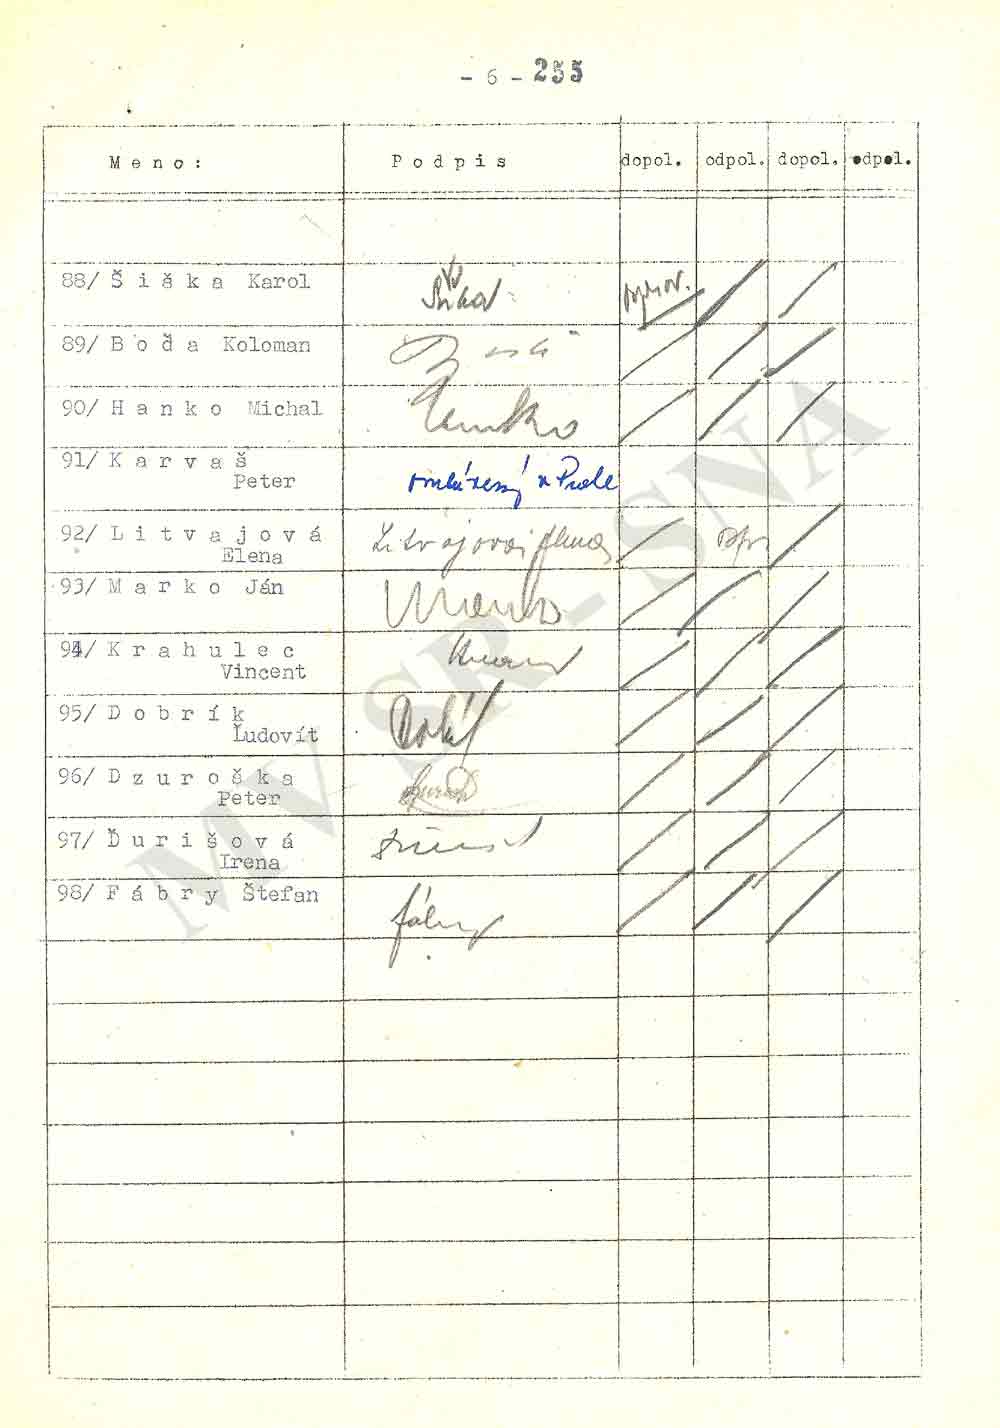 - 6 - 255
Meno: Podpis dopol. odpol. dopol. odpol.
88/ Šiška Karol
89/ Boďa Koloman
90/ Hanko Michal Hanko
91/ Karvaš
Peter
92/ Litvajová Litvajová Elena
Elena
93/ Marko Ján Marko
94/ Krahulec
Vincent
95/ Dobrík
Ľudovít
96/ Dzuroška
Peter
97/ Ďurišová
Irena
98/ Fábry Štefan Fábry
MV SR - SNA